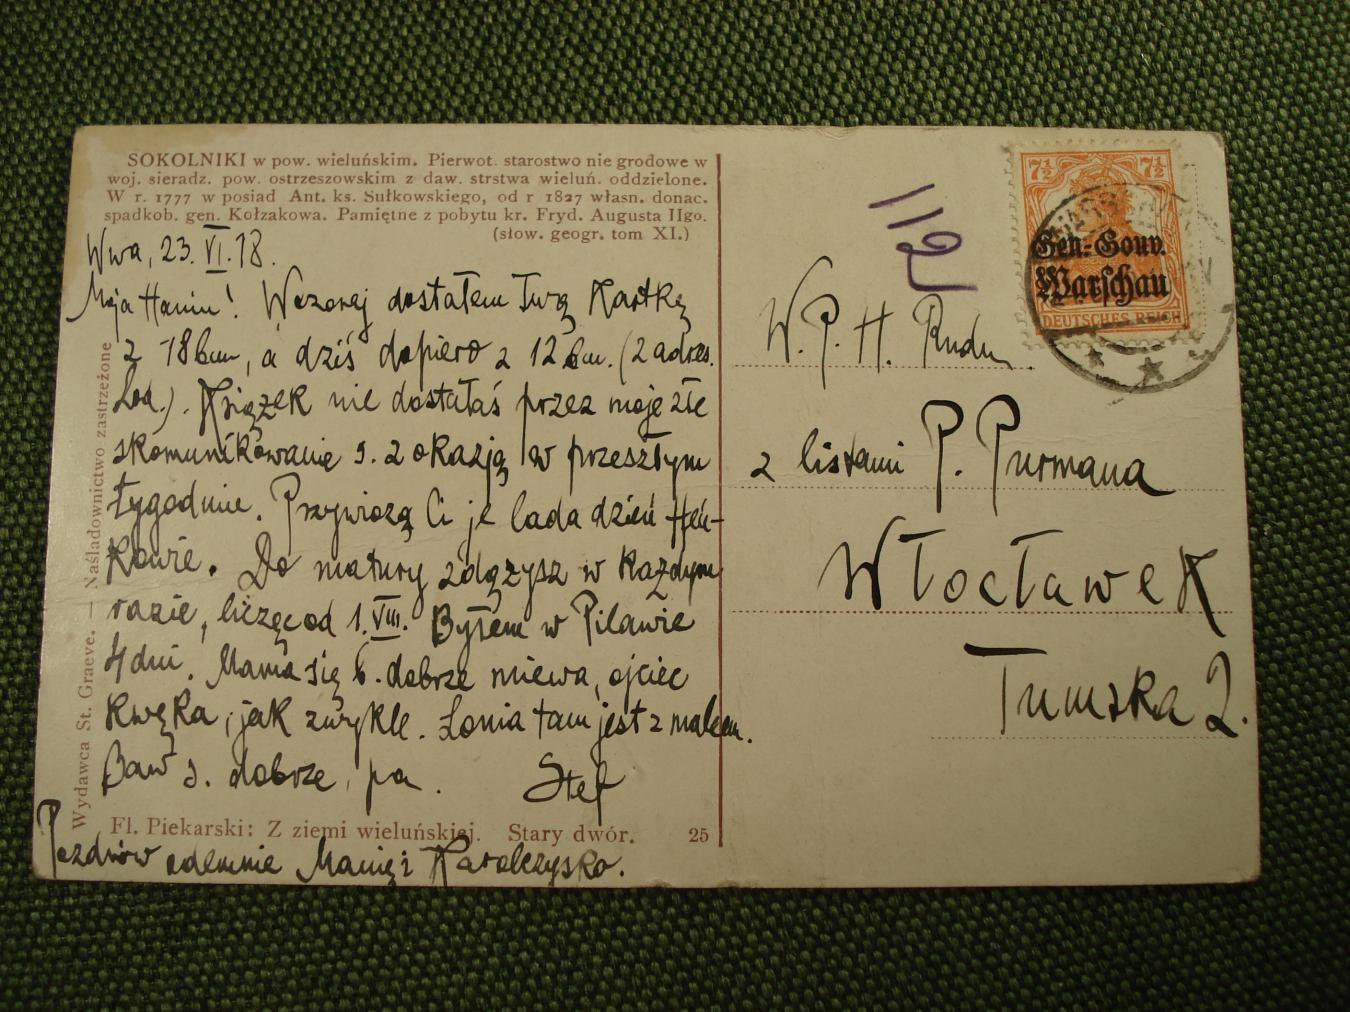 SOKOLNIKI w pow. wieluńskim. Pierwot. starostwo nie grodowe w
woj. sieradz. pow. ostrzeszowskim z daw. strstwa wieluń. oddzielone.
W r. 1777 w posiad Ant. ks. Sułkowskiego, od r 1827 własn. donac.
spadkob. gen. Kołzakowa. Pamiętne z pobytu kr. Fryd. Augusta IIgo.
(słow. geogr. tom XI.)
Wwa, 23. VI. 18.
Moja Haniu! Wczoraj dostałem Twą Kartkę
z 18 bm, a dziś dopiero z 12 bm. (z adres.
Lod.). Książek nie dostałaś przez moje złe
skomunikowanie s. z okazją w przeszłym
tygodniu. Przywiozą Ci je lada dzień Heń-
kowie. Do matury zdążysz w każdym
razie, licząc od 1. VIII. Byłem w Pilawie
4 dni. Mama się b. dobrze miewa, ojciec
kwęka, jak zwykle. Lonia tam jest z malcem.
Baw s. dobrze, pa. Stef
Fl. Piekarski: Z ziemi wieluńskiej. Stary dwór. 25
Pozdrów odemnie Manię i Karolczysko.
Wydawca St. Graeve. — Naśladownictwo zastrzeżone
112
7½ 7½
Gen.-Gouv.
Warschau
DEUTSCHES REICH
W. P. H.
z listami P. P. Purmana
Włocławek
Tumska 2.